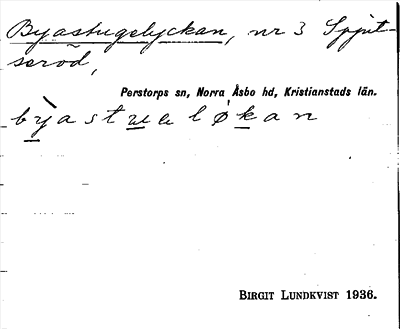 Byastugelyckan, nr 3 Spjut-
seröd,
Perstorps sn, Norra Åsbo hd, Kristianstads län.
bỳastuəløkan
BIRGIT LUNDKVIST 1936.